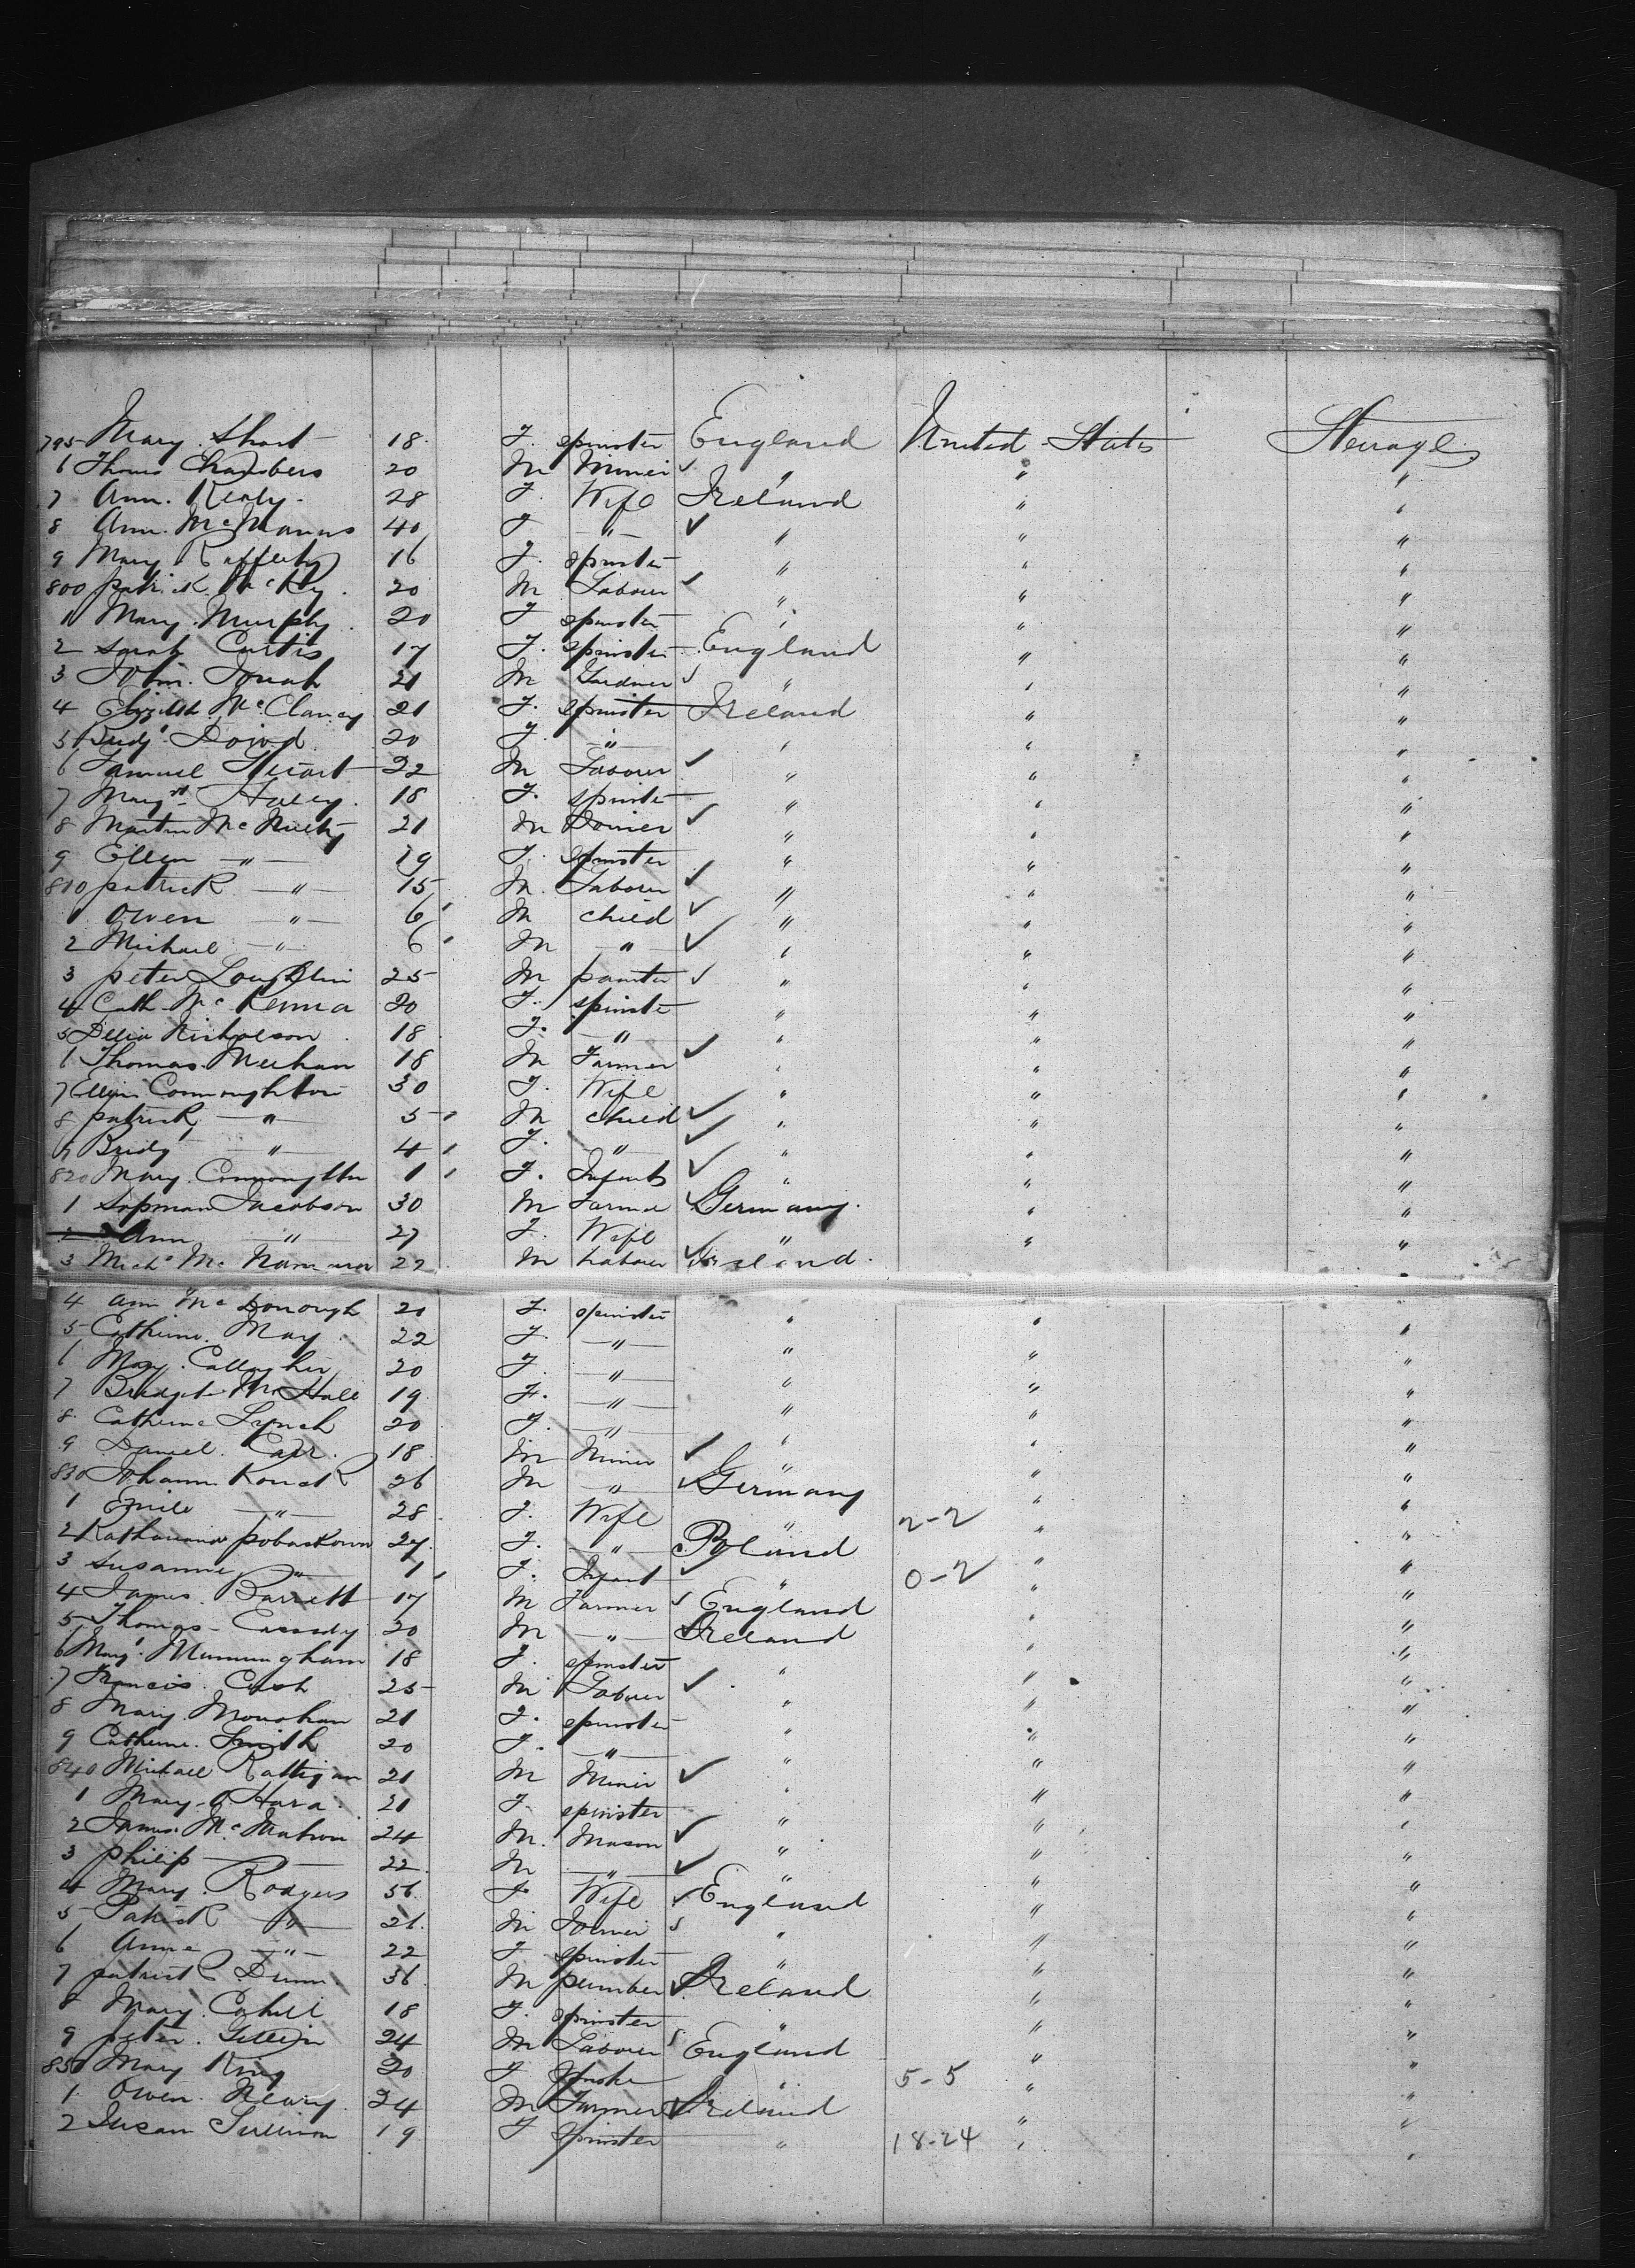 795 Mary Short 18 F. spinster England United States Steerage
6 Thomas Chambers 20 M Miner " " "
7 Ann. Kealy 28 F. Wife Ireland " "
8 Ann. McManus 40 F " " " "
9 Mary Rafferty 16 F. spinster " " "
800 patrick McKey 20 M Labourer " " "
1 Mary Murphy 20 F spinster " " "
2 Sarah Curtis 17 F. spinster England " "
3 John 21 M Gardner " " "
4 Elizabth McClancy 21 F. spinster Ireland " "
5 Bridgt Dowd 20 F. " " " "
6 Samuel Stuart 22 M Labourer " " "
7 Margt 18 F. spinster " " "
8 Martin McNulty 21 M Joiner " " "
9 Ellen " 19 F. spinster " " "
810 patrick " 15 M. Labourer " " "
1 Owen " 6 M child " " "
2 Michael " 6 M " " " "
3 peter Loughlin 25 M painter " " "
4 Cath McKenna 20 F. spinster " " "
5 Delia Nicholson 18 F. " " " "
6 Thomas Meehan 18 M Farmer " " "
7 Ellen Connoughton 30 F. Wife " " "
8 patrick " 5 M child " " "
9 Bridgt " 4 F. " " " "
820 Mary Connoughton 1 F. Infant " " "
1 Jacobson 30 M Farmer Germany " "
2 Ann " 27 F. Wife " " "
3 Michl McNamara 22 M Labourer Ireland " "
4 Ann McDonough 21 F. spinster " " "
5 Catherine May 22 F. " " " "
6 Mary Callagher 20 F. " " " "
7 Bridget McHale 19 F. " " " "
8 Catherine Lynch 20 F. " " " "
9 Daniel Carr 18 M Miner " " "
830 Johann 26 M " Germany " "
1 Emile " 28 F. Wife " 2-2 " "
2 Katharina 27 F. " Poland " "
3 Susanne " 1 F. Infant " 0-2 " "
4 James Barrett 17 M Farmer England " "
5 Thomas Cassidy 20 M " Ireland " "
6 Margt 18 F. spinster " " "
7 Francis Cash 25 M Labourer " " "
8 Mary Monohan 21 F. spinster " " "
9 Catherine Smith 20 F. " " " "
840 Michael Rattigan 21 M Miner " " "
1 Mary O'Hara 21 F spinster " " "
2 James McMahon 24 M. Mason " " "
3 philip 22 M " " " "
4 Mary Rodgers 56 F Wife England " "
5 Patrick " 21 M Joiner " " "
6 Anne " 22 F spinster " " "
7 patrick Dunn 36 M plumber Ireland " "
8 Mary Cahill 18 F. spinster " " "
9 peter 24 M Labourer England " "
850 Mary King 20 F spinster " 5-5 " "
1 Owen Neary 24 M Farmer Ireland " "
2 Susan Sullivan 19 F spinster " 18-24 " "